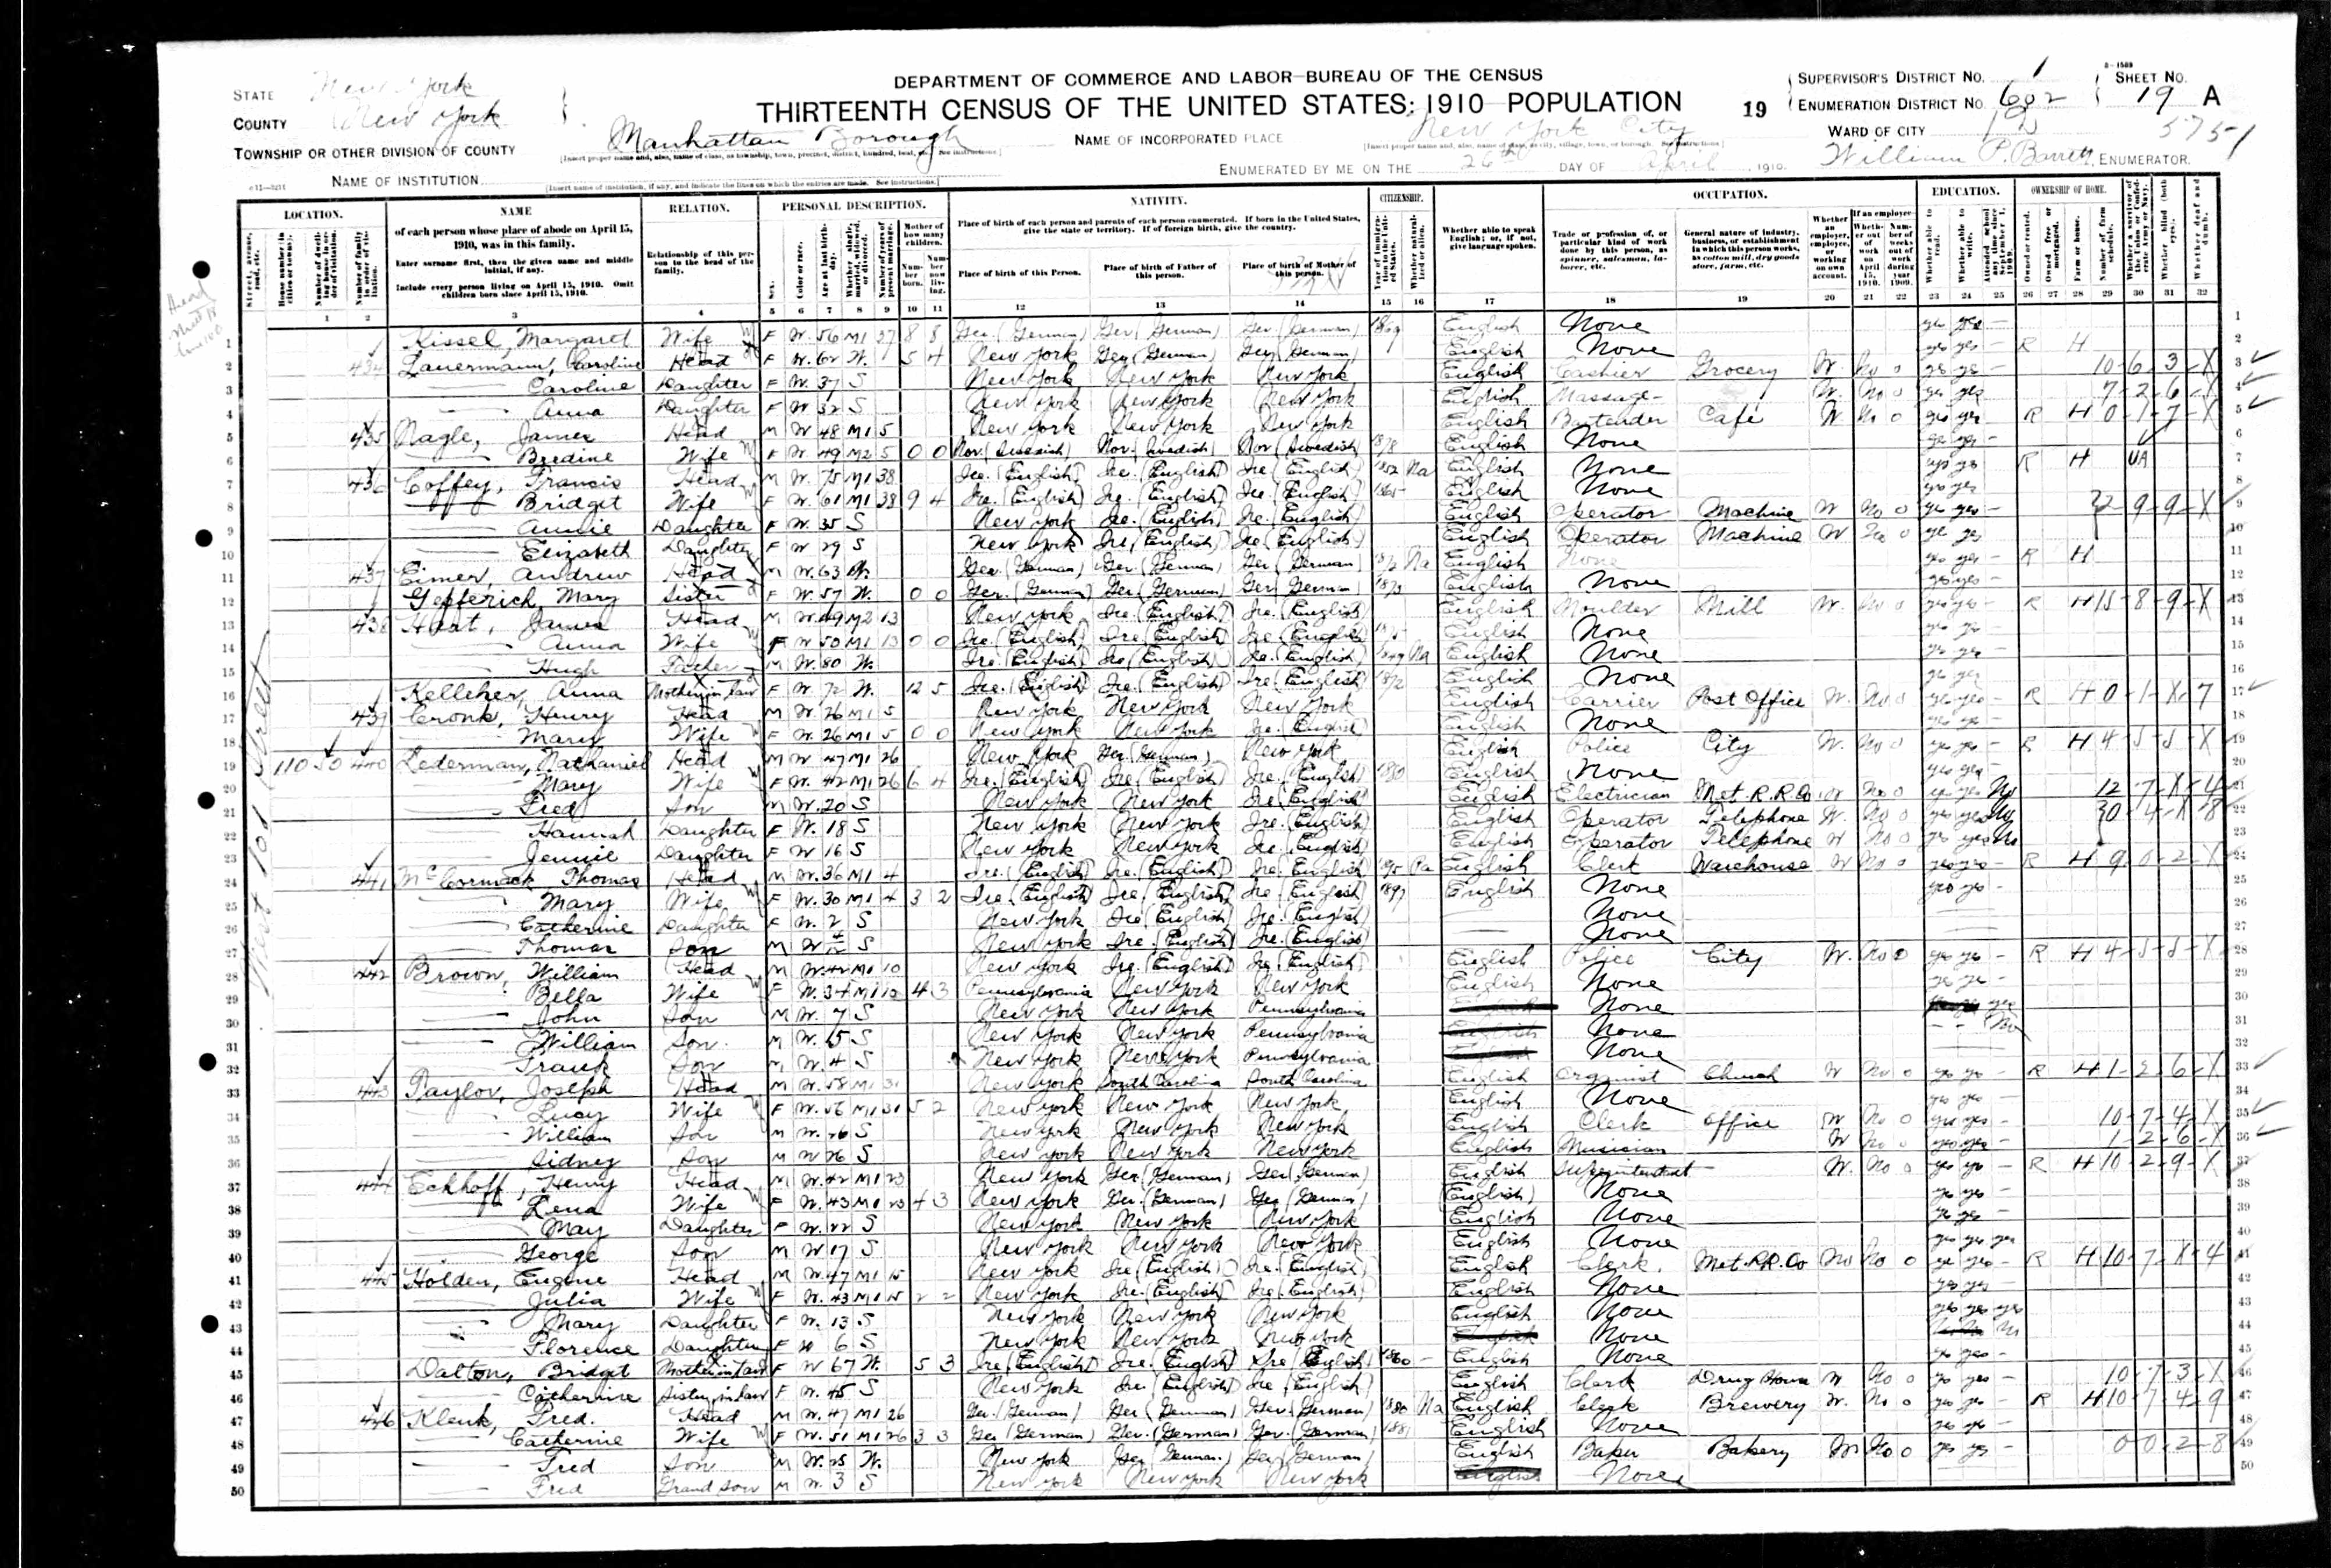 DEPARTMENT OF COMMERCE AND LABOR—BUREAU OF THE CENSUS
THIRTEENTH CENSUS OF THE UNITED STATES: 1910 POPULATION
STATE New York
COUNTY New York
TOWNSHIP OR OTHER DIVISION OF COUNTY Manhattan Borough
NAME OF INCORPORATED PLACE New York City
NAME OF INSTITUTION
ENUMERATED BY ME ON THE 26th DAY OF April, 1910.
SUPERVISOR'S DISTRICT NO. 1
ENUMERATION DISTRICT NO. 602
SHEET NO. 19 A
WARD OF CITY 12
5751
William P. Barrett, ENUMERATOR.
LOCATION. NAME RELATION. PERSONAL DESCRIPTION. NATIVITY. CITIZENSHIP. OCCUPATION. EDUCATION. OWNERSHIP OF HOME.
of each person whose place of abode on April 15, 1910, was in this family.
Enter surname first, then the given name and middle initial, if any.
Include every person living on April 15, 1910. Omit children born since April 15, 1910.
Relationship of this person to the head of the family.
Place of birth of each person and parents of each person enumerated. If born in the United States, give the state or territory. If of foreign birth, give the country.
Place of birth of this Person. Place of birth of Father of this person. Place of birth of Mother of this person.
Whether able to speak English; or, if not, give language spoken.
1 Kissel, Margaret Wife F W 56 M1 37 8 8 Ger. (German) Ger (German) Ger (German) 1869 English None yes yes
2 434 Lauermann, Caroline Head F W 62 W 5 4 New York Ger (German) Ger (German) English None yes yes R H
3 Caroline Daughter F W 37 S New York New York New York English Cashier Grocery W No 0 yes yes 10-6-3-X
4 Anna Daughter F W 32 S New York New York New York English Massage W No 0 yes yes 7-2-6-X
5 435 Nagle, James Head M W 48 M1 5 New York New York New York English Bartender Cafe W No 0 yes yes R H 0-1-7-X
6 Wife F W 49 M2 5 0 0 Nor. (Swedish) Nor. (Swedish) Nor (Swedish) 1878 English None yes yes
7 436 Coffey, Francis Head M W 75 M1 38 Ire. (English) Ire. (English) Ire (English) 1852 Na English None yes yes R H UA
8 Bridget Wife F W 61 M1 38 9 4 Ire. (English) Ire. (English) Ire (English) 1865 English None yes yes
9 Annie Daughter F W 35 S New York Ire. (English) Ire. (English) English Operator Machine W No 0 yes yes 22-9-9-X
10 Elizabeth Daughter F W 29 S New York Ire (English) Ire (English) English Operator Machine W No 0 yes yes
11 437 Eimer, Andrew Head M W 63 Ger. (German) Ger (German) Ger (German) Na English None yes yes R H
12 Gefferich, Mary Sister F W 57 W 0 0 Ger. (German) Ger (German) Ger (German) English None yes yes
13 438 James Head M W 49 M2 13 New York Ire. (English) Ire. (English) English Moulder Mill W No 0 yes yes R H 15-8-9-X
14 Anna Wife F W 50 M1 13 0 0 Ire (English) Ire (English) Ire (English) English None yes yes
15 Hugh Father M W 80 W Ire. (English) Ire (English) Ire (English) 1849 Na English None yes yes
16 Kelleher, Anna Mother in law F W 72 W 12 5 Ire. (English) Ire. (English) Ire (English) 1872 English None yes yes
17 439 Cronk, Henry Head M W 26 M1 5 New York New York New York English Carrier Post Office W No 0 yes yes R H 0-1-X-7
18 Mary Wife F W 26 M1 5 0 0 New York New York Ire (English) English None yes yes
19 110 50 440 Lederman, Nathaniel Head M W 47 M1 26 New York Ger (German) New York English Police City W No 0 yes yes R H 4-5-5-X
20 Mary Wife F W 42 M1 26 6 4 Ire. (English) Ire (English) Ire. (English) 1880 English None yes yes
21 Fred Son M W 20 S New York New York Ire (English) English Electrician Met. R.R. Co W No 0 yes yes No 12-7-X-4
22 Hannah Daughter F W 18 S New York New York Ire. (English) English Operator Telephone W No 0 yes yes No 30-4-X-8
23 Jennie Daughter F W 16 S New York New York Ire (English) English Operator Telephone W No 0 yes yes No
24 441 McCormack, Thomas Head M W 36 M1 4 Ire. (English) Ire. (English) Ire. (English) 1895 Pa English Clerk Warehouse W No 0 yes yes R H 9-0-2-X
25 Mary Wife F W 30 M1 4 3 2 Ire. (English) Ire. (English) Ire. (English) 1897 English None yes yes
26 Catherine Daughter F W 2 S New York Ire (English) Ire. (English) None
27 Thomas Son M W S New York Ire. (English) Ire. (English) None
28 442 Brown, William Head M W 42 M1 10 New York Ire. (English) Ire (English) English Police City W No 0 yes yes R H 4-5-5-X
29 Bella Wife F W 34 M1 10 4 3 Pennsylvania New York New York English None yes yes
30 John Son M W 7 S New York New York Pennsylvania None yes
31 William Son M W 5 S New York New York Pennsylvania None No
32 Frank Son M W 4 S New York New York Pennsylvania None
33 443 Taylor, Joseph Head M W 58 M1 31 New York South Carolina South Carolina English Organist Church W No 0 yes yes R H 1-2-6-X
34 Lucy Wife F W 56 M1 31 5 2 New York New York New York English None yes yes
35 William Son M W 26 S New York New York New York English Clerk Office W No 0 yes yes 10-7-4-X
36 Sidney Son M W 26 S New York New York New York English Musician W No 0 yes yes 1-2-6-X
37 444 Eckhoff, Henry Head M W 42 M1 23 New York Ger (German) Ger (German) English Superintendent W No 0 yes yes R H 10-2-9-X
38 Lena Wife F W 43 M1 23 4 3 New York Ger. (German) Ger (German) English None yes yes
39 May Daughter F W 22 S New York New York New York English None yes yes
40 George Son M W 17 S New York New York New York English None yes yes yes
41 445 Holden, Eugene Head M W 47 M1 15 New York Ire (English) Ire. (English) English Clerk Met. RR. Co No 0 yes yes R H 10-7-X-4
42 Julia Wife F W 43 M1 15 2 2 New York Ire. (English) Ire (English) English None yes yes
43 Mary Daughter F W 13 S New York New York New York English None yes yes yes
44 Florence Daughter F W 6 S New York New York New York None
45 Dalton, Bridget Mother in law F W 67 W 5 3 Ire (English) Ire. (English) Ire (English) 1860 English None yes yes
46 Catherine Sister in law F W 45 S New York Ire (English) Ire (English) English Clerk Drug House W No 0 yes yes 10-7-3-X
47 446 Klenk, Fred. Head M W 47 M1 26 Ger. (German) Ger (German) Ger (German) 1880 Na English Clerk Brewery W No 0 yes yes R H 10-7-4-9
48 Catherine Wife F W 51 M1 26 3 3 Ger (German) Ger. (German) Ger. (German) 1881 English None yes yes
49 Fred Son M W 25 W New York Ger (German) Ger (German) English Baker Bakery W No 0 yes yes 0-0-2-8
50 Fred Grand son M W 3 S New York New York New York None